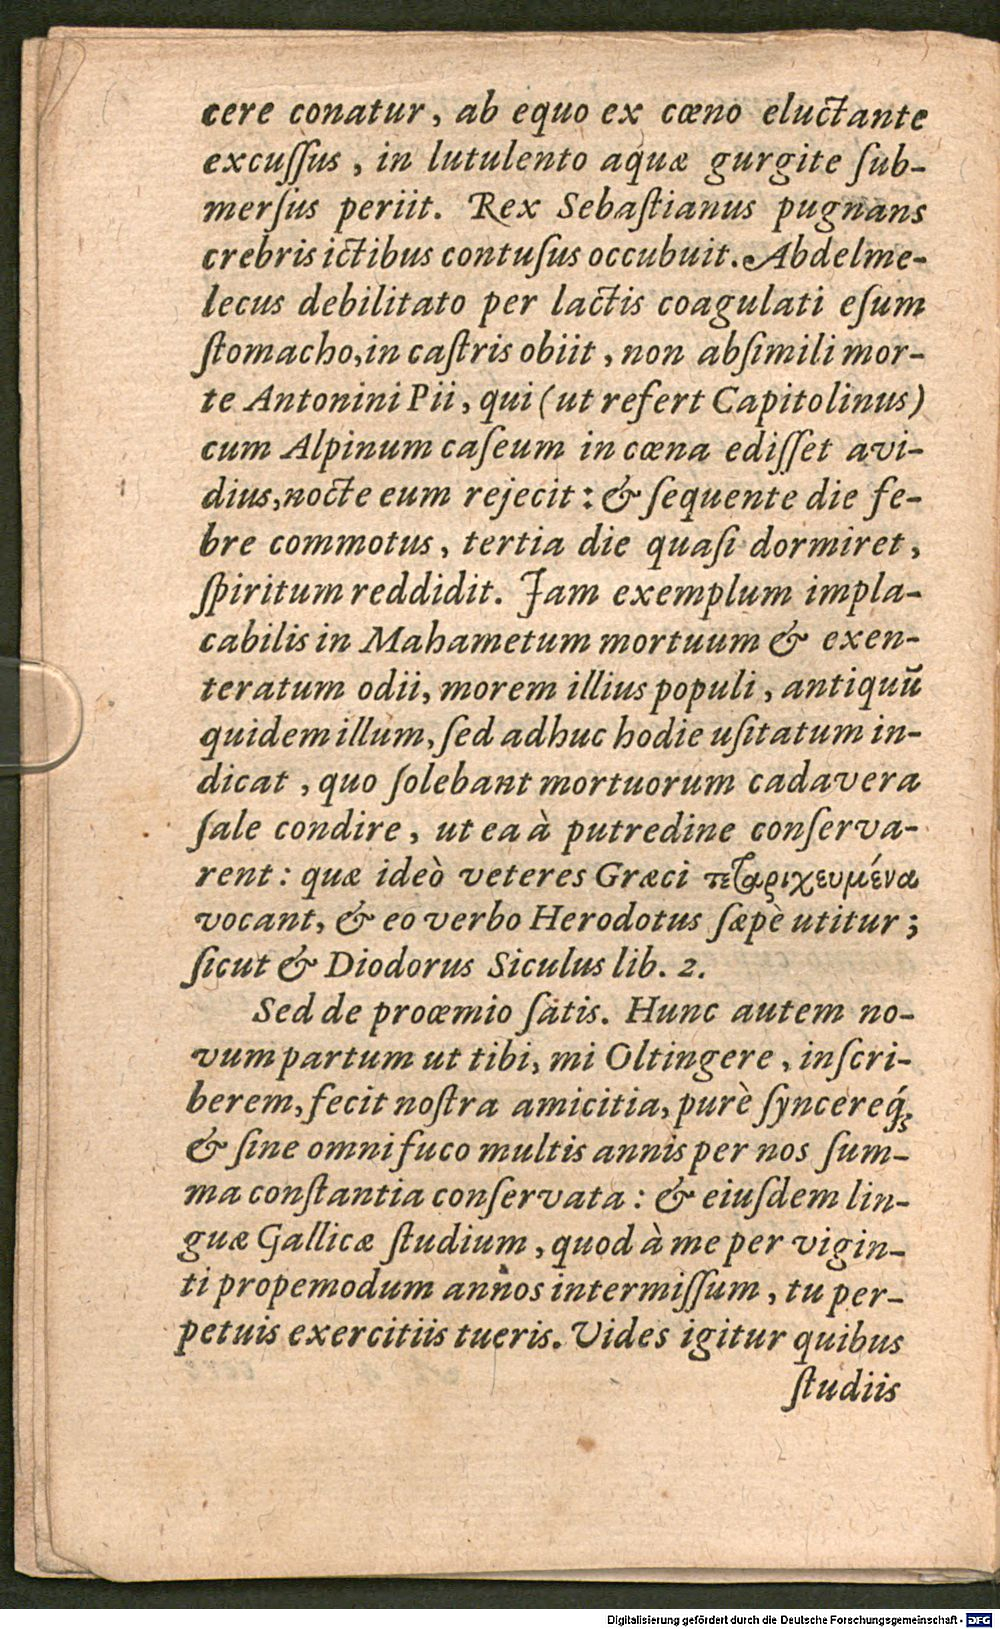 cere conatur, ab equo ex cœno eluctante
excuſſus, in lutulento aquæ gurgite ſub-
merſus periit. Rex Sebaſtianus pugnans
crebris ictibus contuſus occubuit. Abdelme-
lecus debilitato per lactis coagulati eſum
ſtomacho, in caſtris obiit, non abſimili mor-
te Antonini Pii, qui (ut refert Capitolinus)
cum Alpinum caſeum in cœna ediſſet avi-
dius, nocte eum rejecit: & ſequente die fe-
bre commotus, tertia die quaſi dormiret,
ſpiritum reddidit. Jam exemplum impla-
cabilis in Mahametum mortuum & exen-
teratum odii, morem illius populi, antiquũ
quidem illum, ſed adhuc hodie uſitatum in-
dicat, quo ſolebant mortuorum cadavera
ſale condire, ut ea à putredine conſerva-
rent: quæ ideò veteres Græci τεταριχευμένα
vocant, & eo verbo Herodotus ſæpè utitur;
ſicut & Diodorus Siculus lib. 2.
Sed de proœmio ſatis. Hunc autem no-
vum partum ut tibi, mi Oltingere, inſcri-
berem, fecit noſtra amicitia, purè ſyncereq́;
& ſine omni fuco multis annis per nos ſum-
ma conſtantia conſervata: & eiuſdem lin-
guæ Gallicæ ſtudium, quod à me per vigin-
ti propemodum annos intermiſſum, tu per-
petuis exercitiis tueris. Vides igitur quibus
ſtudiis
Digitalisierung gefördert durch die Deutsche Forschungsgemeinschaft - DFG